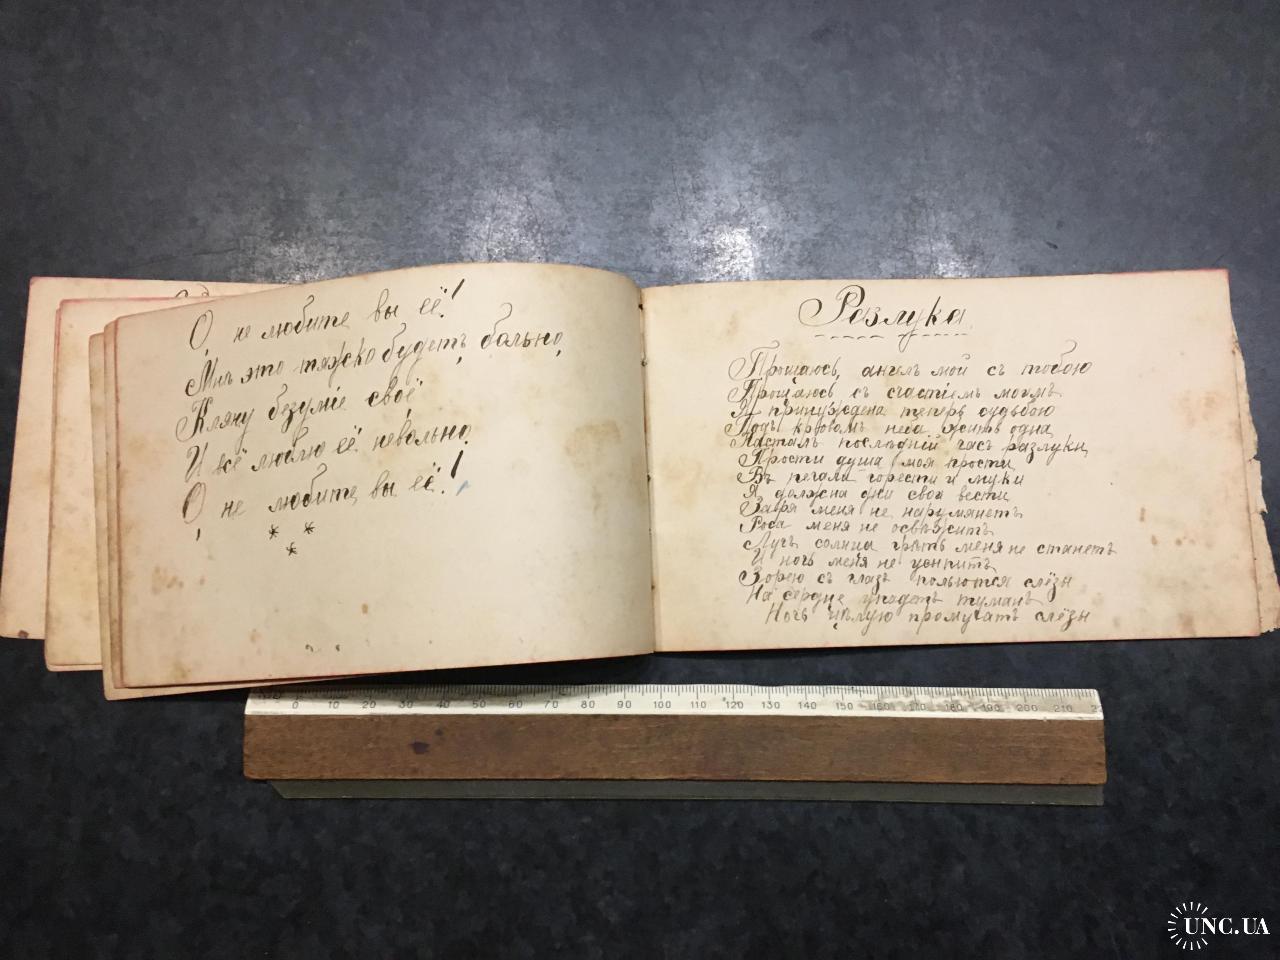 О, не любите вы её!
Мнѣ это тяжко будетъ, больно,
Кляну безуміе своё,
И всё люблю её невольно.
О, не любите вы её!
* *
*
Разлука.
Прощаюсь, ангелъ мой съ тобою
Прощаюсь съ счастіемъ моимъ
Я принуждена теперь судьбою
Подъ кровомъ неба жить одна
Насталъ послѣдній часъ разлуки,
Прости душа моя прости,
Въ печали горести и муки
Я должна дни свои вести
Заря меня не нарумянетъ
Роса меня не освѣжитъ
Лучъ солнца грѣть меня не станетъ
И ночь меня не усыпитъ
Зорею съ глазъ польются слёзы
На сердце упадетъ туманъ
Ночь цѣлую промучатъ слёзы
0 10 20 30 40 50 60 70 80 90 100 110 120 130 140 150 160 170 180 190 200 210
UNC.UA